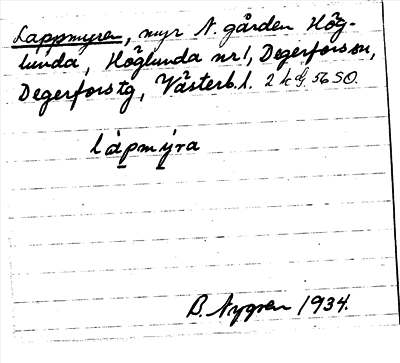 Lappmyren, myr N. gården Hög-
lunda, Höglunda nr 1, Degerfors sn,
Degerfors tg, Västerb. l. 2 h G 56 SO.
låpmýra
B. Nygren 1934.